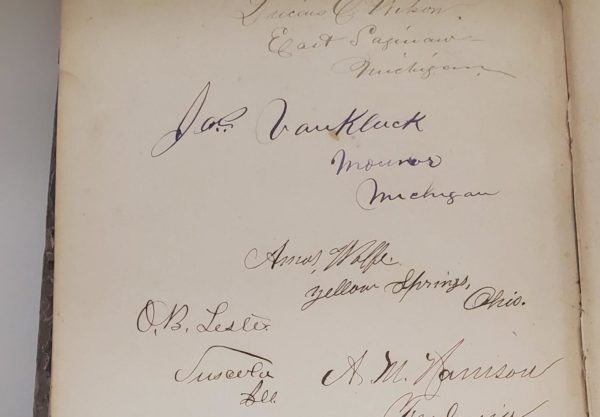 Lucius C. Wilson.
East Saginaw
Michigan.
Jas. VanKluck
Monroe
Michigan
Amos Wolfe
Yellow Springs,
Ohio.
O. B. Lester
Tuscola
Ill.
A M. Harrison